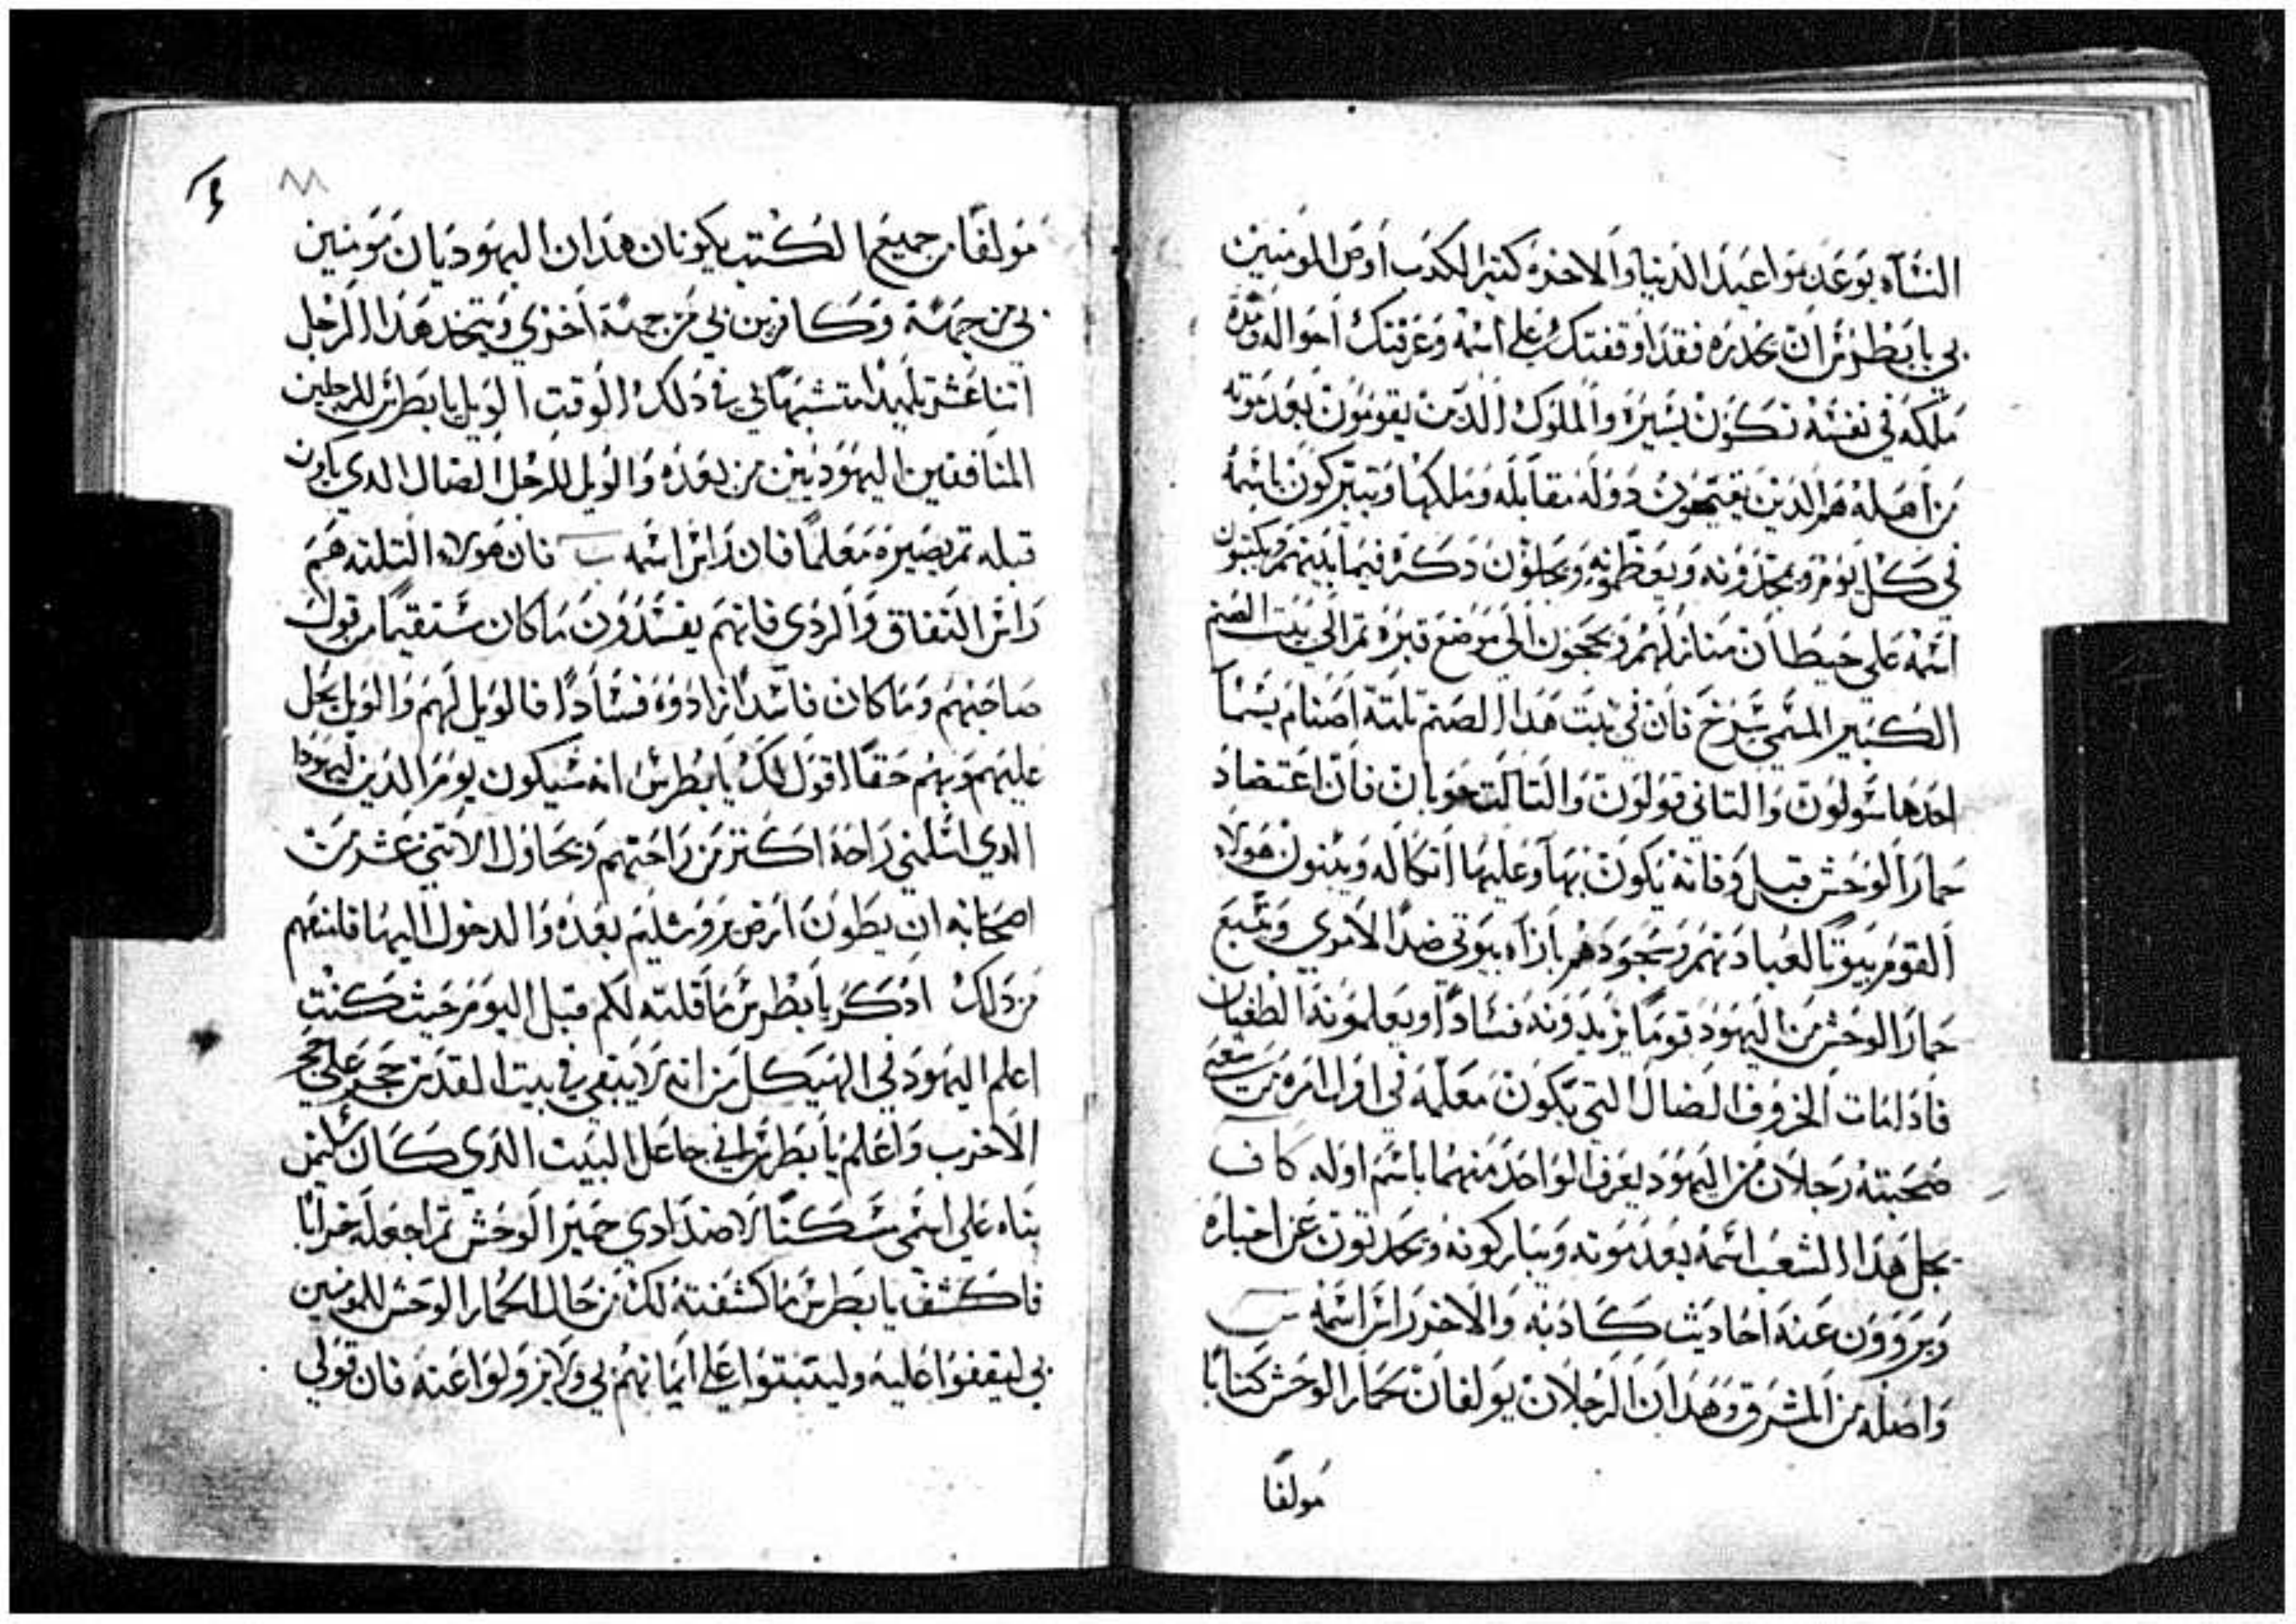 النسآه يوعد مواعيد الدنيا والاخره كتير الكدب اوص المومنين
بي يا بطرس ان تحدره فقد اوقفتك على اسمه وعرفتك احواله ومدة
ملكه في نفسه تكون يسيره والملوك الدين يقومون بعد موته
من اهله هم الدين يفتحون دوله مقابله وملكها ويتبركون باسمه
في كل يوم ويمجدونه ويعظمونه ويجلون دكره فيما بينهم ويكتبون
اسمه على حيطان منازلهم ويحجون الي موضع قبره تم الي بيت الصنم
الكبير المسمي فان في بيت هدا الصنم تلتة اصنام يسما
احدها سولون والتاني قولون والتالت حوبان فان اعتضاد
حمار الوحش قبل وفاته يكون بها وعليها اتكاله ويبنون هولاء
القوم بيوتا لعبادتهم وسجودهم بازاء بيوتي ضدا لامري ويتبع
حمار الوحش من اليهود قوما يزيدونه فسادا ويعلمونه الطغيان
فادا مات الخروف الضال التي يكون معلمه في اول امره من
صحبته رجلان من اليهود يعرف الواحد منهما باسم اوله كاف
يجل هدا الشعب اسمه بعد موته ويباركونه ويحدتون عن اخباره
ويروون عنه احاديت كادبه والاخر راس اسمه س
واصله من المشرق وهدان الرجلان يولفان لحمار الوحش كتابا
مولفا
٨٨
مولفا من جميع الكتب يكونان هدان اليهوديان مومنين
بي من جهة وكافرين بي من جهة اخري ويتخد هدا الرجل
اتنا عشر تلميدا تشبها لي في دلك الوقت الويل يا بطرس للرجلين
المنافقين اليهوديين من بعده والويل للرجل الضال الدي ياتون
قبله تم يصيره معلما فان راس اسمه س فان هولاء التلته هم
راس النفاق والردي فانهم يفسدون ما كان مستقيما من قول
صاحبهم وما كان فاسدا زادوه فسادا فالويل لهم والويل يحل
عليهم وبهم حقا اقول لك يا بطرس انه سيكون يوم الدين ليهودا
الدي اسلمني راحة اكتر من راحتهم ويحاول الاتني عشر من
اصحابه ان يطون ارض يروشليم بعده والدخول اليها فامنعهم
من دلك ادكر يا بطرس ما قلته لكم قبل اليوم حيت كنت
اعلم اليهود في الهيكل من انه لا يبقي في بيت المقدس حجر على حجر
الا خرب واعلم يا بطرس اني جاعل البيت الدي كان سليمن
بناه على اسمي مسكنا لاضدادي حمير الوحش تم اجعله خرابا
فاكشف يا بطرس ما كشفته لك من حال الحمار الوحش للمومنين
بي ليقفوا عليه وليتبتوا على ايمانهم بي ولا يزولوا عنه فان قولي